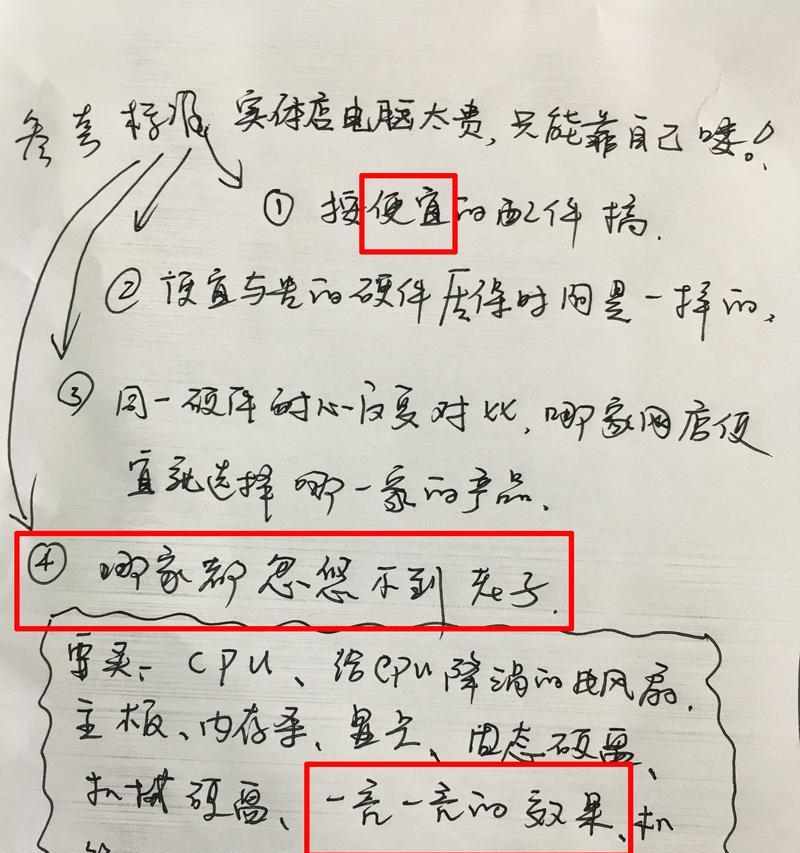 参考标准 实体店电脑太贵,只能靠自己喽!
① 按便宜的配件搞.
② 便宜与贵的硬件质保时间是一样的,
③ 同一硬件耐心反复对比,哪家网店便
宜就选择哪一家的产品.
④ 哪家都忽悠不到老子.
需买: CPU、给CPU降温的电风扇.
主板、内存条、显卡、固态硬盘、
机械硬盘、一亮一亮的效果、机